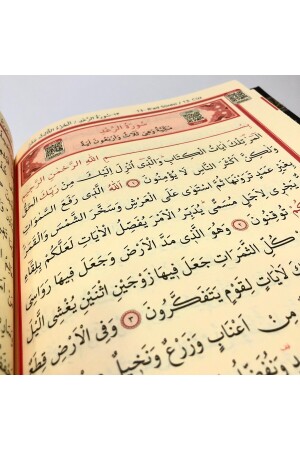 سُورَةُ الرَّعْدِ
وَهِيَ ثَلَاثٌ وَاَرْبَعُونَ اٰيَةً
بِسْمِ اللّٰهِ الرَّحْمٰنِ الرَّحِيمِ
الٓمٓرٰ تِلْكَ اٰيَاتُ الْكِتَابِ وَالَّذِٓي اُنْزِلَ اِلَيْكَ مِنْ رَبِّكَ الْحَقُّ
وَلٰكِنَّ اَكْثَرَ النَّاسِ لَا يُؤْمِنُونَ ١ اَللّٰهُ الَّذِي رَفَعَ السَّمٰوَاتِ
بِغَيْرِ عَمَدٍ تَرَوْنَهَا ثُمَّ اسْتَوٰى عَلَى الْعَرْشِ وَسَخَّرَ الشَّمْسَ وَالْقَمَرَ
يَجْرِي لِاَجَلٍ مُسَمًّى يُدَبِّرُ الْاَمْرَ يُفَصِّلُ الْاٰيَاتِ لَعَلَّكُمْ بِلِقَٓاءِ
تُوقِنُونَ ٢ وَهُوَ الَّذِي مَدَّ الْاَرْضَ وَجَعَلَ فِيهَا رَوَاسِيَ
كُلِّ الثَّمَرَاتِ جَعَلَ فِيهَا زَوْجَيْنِ اثْنَيْنِ يُغْشِي الَّيْلَ
لَاٰيَاتٍ لِقَوْمٍ يَتَفَكَّرُونَ ٣ وَفِي الْاَرْضِ قِطَعٌ
مِنْ اَعْنَابٍ وَزَرْعٌ وَنَخِيلٌ
وَنُفَضِّلُ